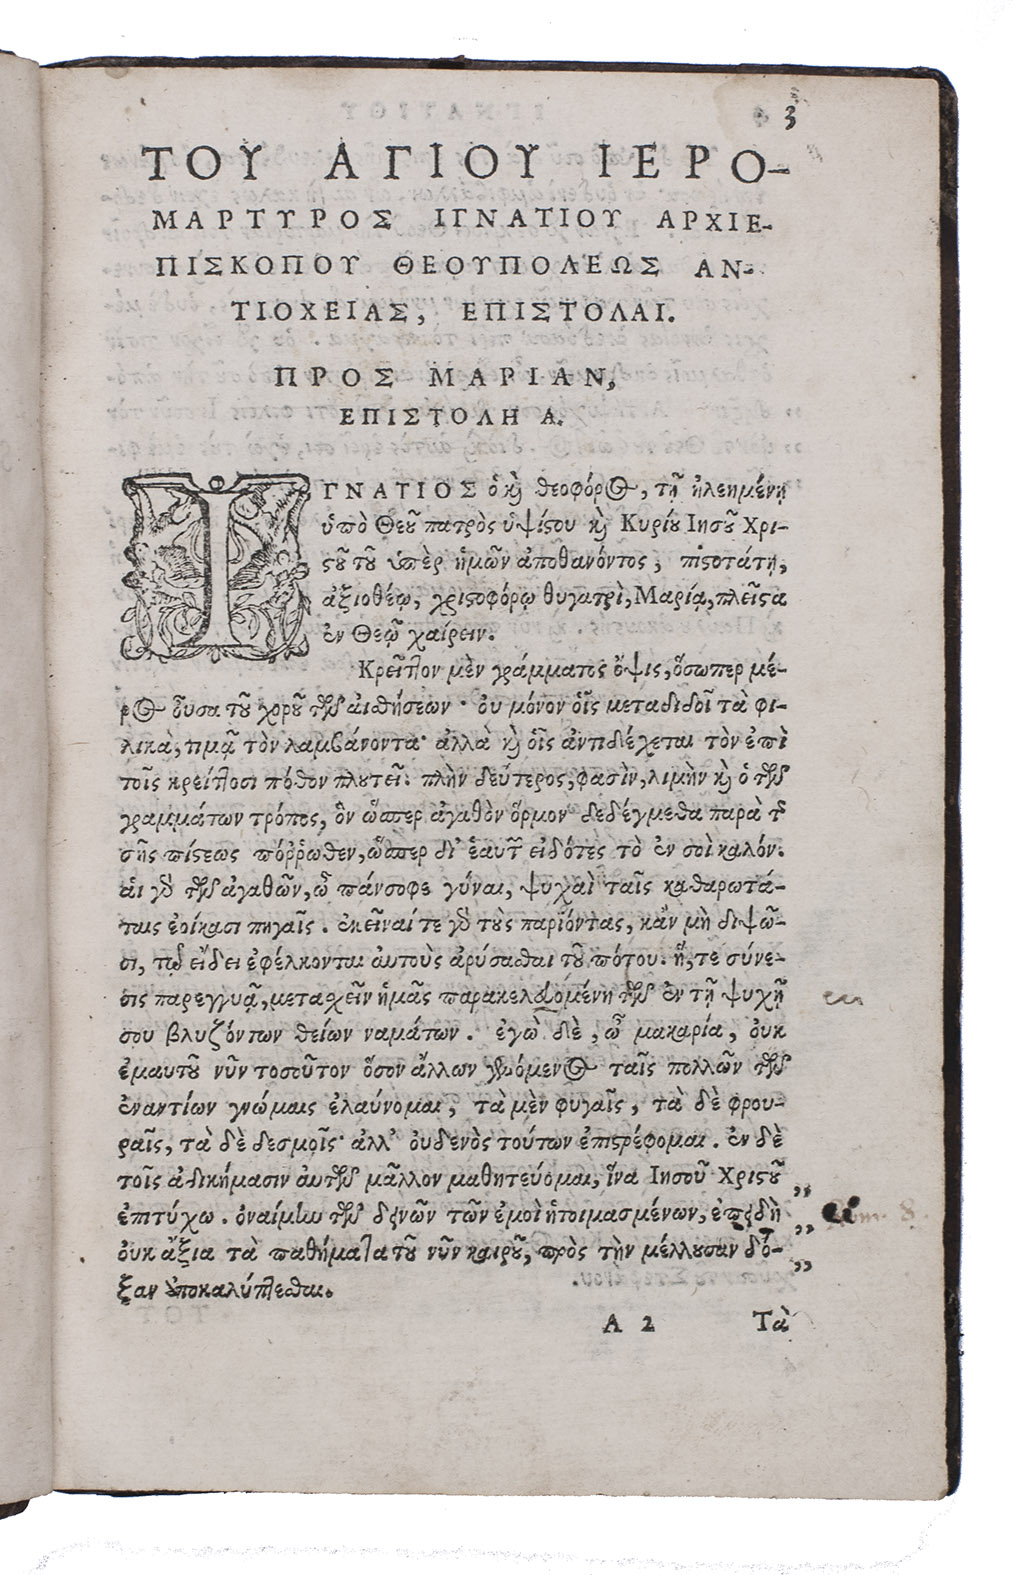 3
ΤΟΥ ΑΓΙΟΥ ΙΕΡΟ-
ΜΑΡΤΥΡΟΣ ΙΓΝΑΤΙΟΥ ΑΡΧΙΕ-
ΠΙΣΚΟΠΟΥ ΘΕΟΥΠΟΛΕΩΣ ΑΝ-
ΤΙΟΧΕΙΑΣ, ΕΠΙΣΤΟΛΑΙ.
ΠΡΟΣ ΜΑΡΙΑΝ,
ΕΠΙΣΤΟΛΗ Α.
ΙΓΝΑΤΙΟΣ ὁ καὶ θεοφόρος, τῇ ἠλεημένῃ
ὑπὸ Θεοῦ πατρὸς ὑψίστου καὶ Κυρίου Ιησοῦ Χρι-
στοῦ τοῦ ὑπὲρ ἡμῶν ἀποθανόντος, πιστοτάτῃ,
ἀξιοθέῳ, χριστοφόρῳ θυγατρὶ, Μαρίᾳ, πλεῖστα
ἐν Θεῷ χαίρειν.
Κρεῖττον μὲν γράμματος ὄψις, ὅσωπερ μέ-
ρος οὖσα τοῦ χοροῦ τῶν αἰσθήσεων· οὐ μόνον οἷς μεταδιδοῖ τὰ φι-
λικὰ, τιμᾷ τὸν λαμβάνοντα· ἀλλὰ καὶ οἷς ἀντιδέχεται τὸν ἐπὶ
τοῖς κρείττοσι πόθον πλουτεῖ: πλὴν δεύτερος, φασὶν, λιμὴν καὶ ὁ τῶν
γραμμάτων τρόπος, ὃν ὥσπερ ἀγαθὸν ὅρμον δεδέγμεθα παρὰ τῆς
σῆς πίστεως πόῤῥωθεν, ὥσπερ δι' ἑαυτῶν εἰδότες τὸ ἐν σοὶ καλόν.
αἱ γὰρ τῶν ἀγαθῶν, ὦ πάνσοφε γύναι, ψυχαὶ ταῖς καθαρωτά-
ταις ἐοίκασι πηγαῖς. ἐκεῖναί τε γὰρ τοὺς παριόντας, κἂν μὴ διψῶ-
σι, τῷ εἴδει ἐφέλκονται αὐτοὺς ἀρύσασθαι τοῦ πότου. ἥ, τε σύνε-
σις παρεγγυᾷ, μετασχεῖν ἡμᾶς παρακελευομένη τῶν ἐν τῇ ψυχῇ
σου βλυζόντων θείων ναμάτων. ἐγὼ δὲ, ὦ μακαρία, οὐκ
ἐμαυτοῦ νῦν τοσοῦτον ὅσον ἄλλων γινόμενος ταῖς πολλῶν τῶν
ἐναντίων γνώμαις ἐλαύνομαι, τὰ μὲν φυγαῖς, τὰ δὲ φρου-
ραῖς, τὰ δὲ δεσμοῖς· ἀλλ' οὐδενὸς τούτων ἐπιστρέφομαι. ἐν δὲ
τοῖς ἀδικήμασιν αὐτῶν μᾶλλον μαθητεύομαι, ἵνα Ιησοῦ Χριστοῦ
ἐπιτύχω. ὀναίμην τῶν δεινῶν τῶν ἐμοὶ ἡτοιμασμένων, ἐπειδὴ ,,
οὐκ ἄξια τὰ παθήματα τοῦ νῦν καιροῦ, πρὸς τὴν μέλλουσαν δό- ,,
ξαν ἀποκαλύπτεσθαι. ,,
Α 2 Τὰ